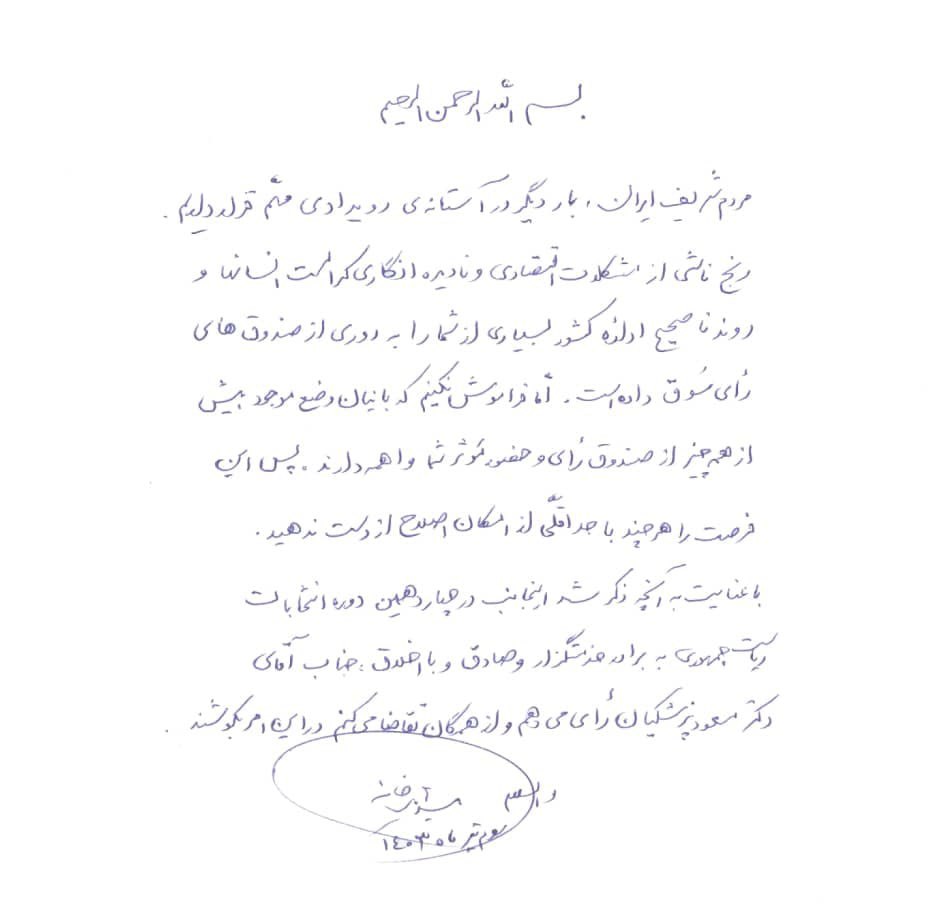 بسم الله الرحمن الرحیم
مردم شریف ایران، بار دیگر در آستانه‌ی رویدادی مهّم قرار داریم.
رنج ناشی از مشکلات اقتصادی و نادیده انگاری کرامت انسانها و
روند ناصحیح اداره کشور بسیاری از شما را به دوری از صندوق های
رأی سُوق داده است. امّا فراموش نکنیم که بانیان وضع موجود بیش
از هر چیز از صندوق رأی و حضور مُوثر شما واهمه دارند. پس این
فرصت را هر چند با حداقلّی از امکان اصلاح از دست ندهید.
با عنایت به آنچه ذکر شد اینجانب در چهاردهمین دوره انتخابات
ریاست جمهوری به برادر خدمتگزار و صادق و با اخلاق، جناب آقای
دکتر مسعود پزشکیان رأی می دهم و از همگان تقاضا می کنم در این امر بکوشند.
والسلام
سوم تیر ماه ۱۴۰۳